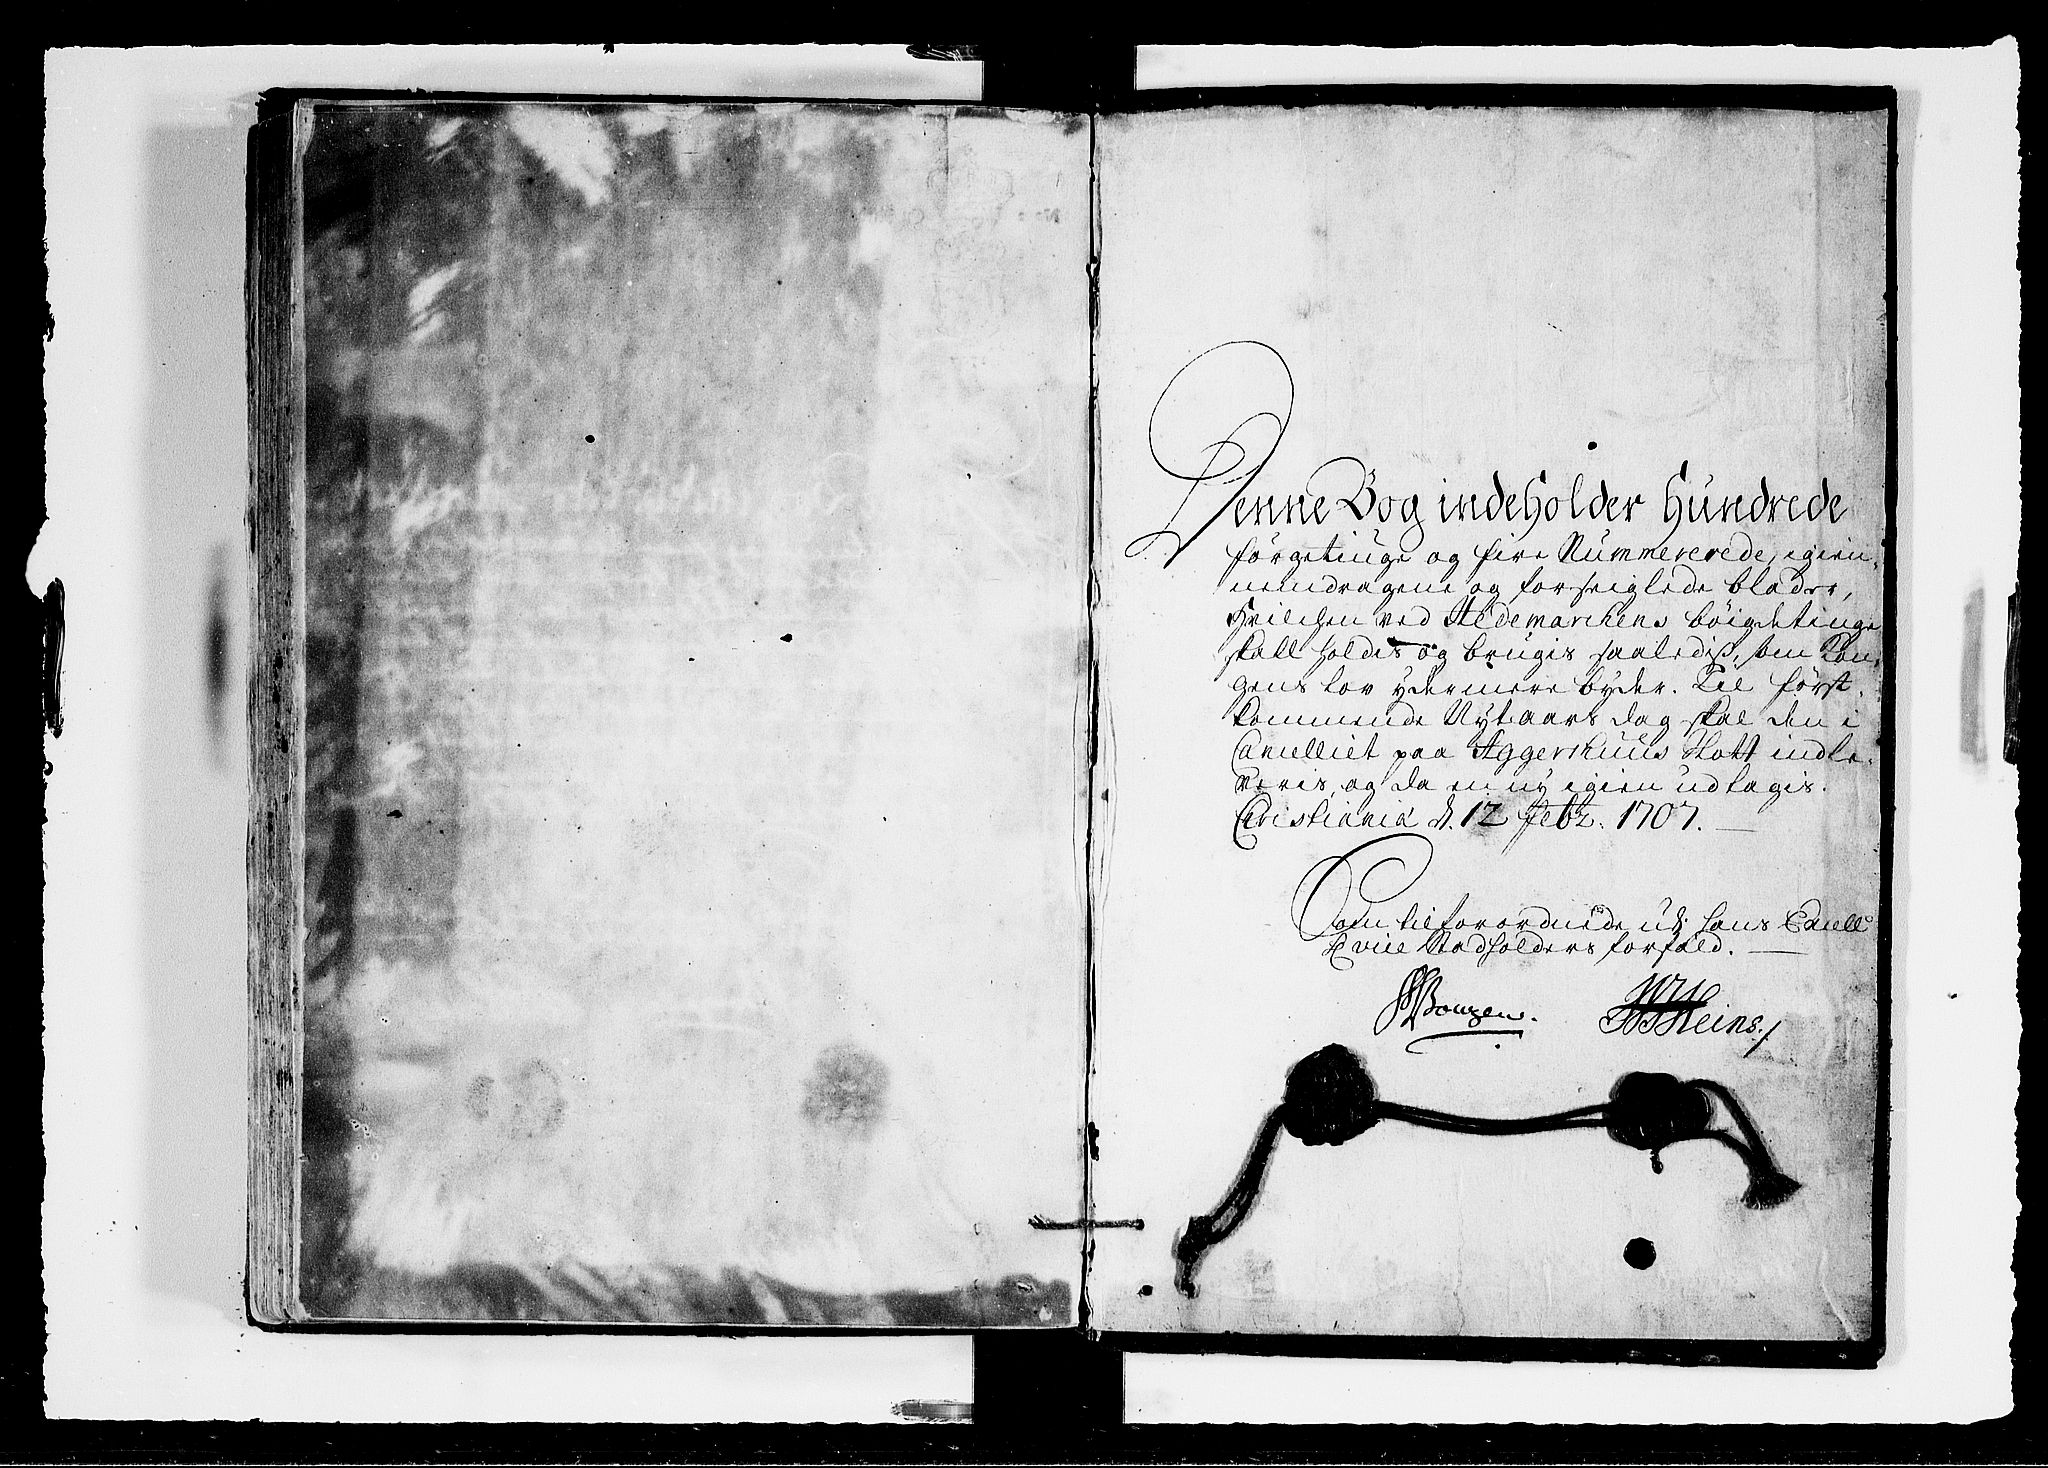 Denne Bog indeholder Hundrede
förgetiuge og fire Nummererede, igien-
nemdragene og forseiglede blader,
Hvilchen ved Hedemarchens böigdetinge
skall holdis og brugis saaledis, som Kon-
gens lov ydermere byder. Til först-
kommende Nytaars dag skal den i
Cancelliet paa Aggershuus Slott indle-
veris, og da en ny igien udtagis.
Christiania d. 12 Febr. 1707.
Som tilforordnede udi hans
Stadholders forfald.